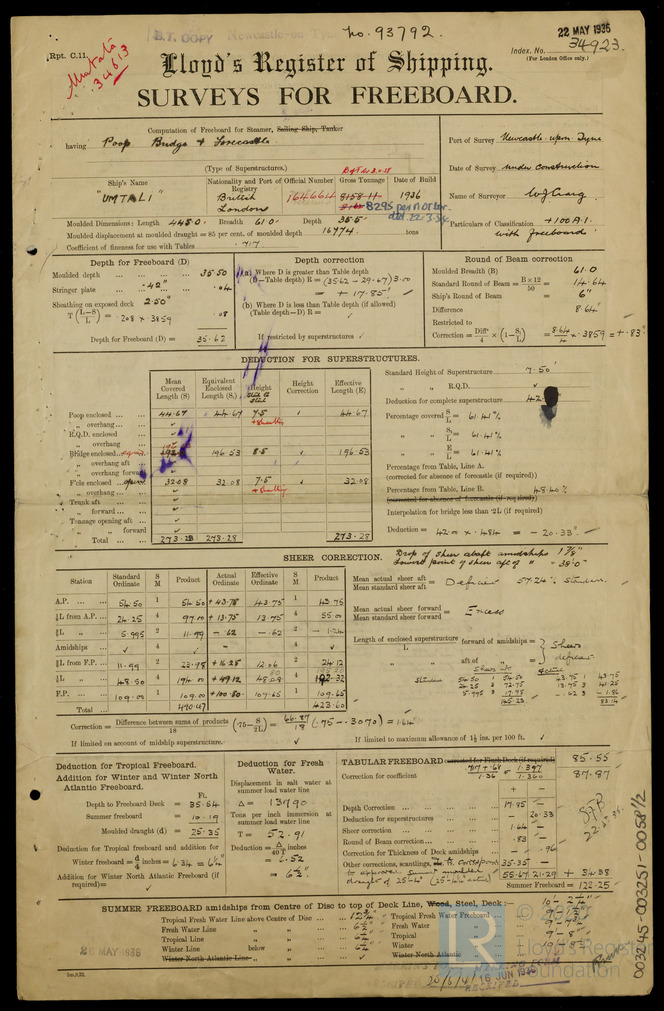 B.T. COPY Newcastle-on-Tyne No. 93792.
22 MAY 1936
Rpt. C.11.
Index. No. 34923.
(For London Office only.)
Umtata
34613
Lloyd's Register of Shipping.
SURVEYS FOR FREEBOARD.
Computation of Freeboard for Steamer, Sailing Ship, Tanker
having Poop Bridge & Forecastle
(Type of Superstructures.)
Port of Survey Newcastle-upon-Tyne
Date of Survey under construction
Name of Surveyor
Particulars of Classification +100 A.1.
with freeboard
Ship's Name
"UMTALI"
Nationality and Port of Registry
British
London
Official Number
164664
Gross Tonnage
8158.11
8295 per
Date of Build
1936
Moulded Dimensions: Length 445.0 Breadth 61.0 Depth 35.5
Moulded displacement at moulded draught = 85 per cent. of moulded depth 16774 tons
Coefficient of fineness for use with Tables .717
Depth for Freeboard (D)
Moulded depth 35.50
Stringer plate .42" .04
Sheathing on exposed deck 2.50"
T (L-S/L) = .208 x .3859 .08
Depth for Freeboard (D) = 35.62
Depth correction
(a) Where D is greater than Table depth
(D-Table depth) R = (35.62 - 29.67) 3.00
= + 17.85"
(b) Where D is less than Table depth (if allowed)
(Table depth-D) R =
If restricted by superstructures
Round of Beam correction
Moulded Breadth (B) 61.0
Standard Round of Beam = B×12/50 = 14.64
Ship's Round of Beam = 6"
Difference 8.64
Restricted to
Correction = Diffᵉ/4 × (1-S/L) = 8.64/4 x .3859 = +.83"
DEDUCTION FOR SUPERSTRUCTURES.
Mean Covered Length (S) Equivalent Enclosed Length (S₁) Height Height Correction Effective Length (E)
Poop enclosed 44.67 44.67 7.5 44.67
„ overhang
R.Q.D. enclosed
„ overhang
Bridge enclosed 196.53 8.5 196.53
„ overhang aft
„ overhang forward
F'cle enclosed 32.08 32.08 7.5 32.08
„ overhang
Trunk aft
„ forward
Tonnage opening aft
„ „ forward
Total 273.28 273.28 273.28
Standard Height of Superstructure 7.50'
„ „ R.Q.D.
Deduction for complete superstructure 42
Percentage covered S/L = 61.41%
„ „ S₁/L = 61.41%
„ „ E/L = 61.41%
Percentage from Table, Line A.
(corrected for absence of forecastle (if required))
Percentage from Table, Line B. 48.40%
(corrected for absence of forecastle (if required))
Interpolation for bridge less than ·2L (if required)
Deduction = 42 x .484 = - 20.33"
SHEER CORRECTION.
Drop of sheer abaft amidships 1 7/8"
Lowest point of sheer aft of „ = 38'0"
Station Standard Ordinate S M Product Actual Ordinate Effective Ordinate S M Product
A.P. 54.50 1 54.50 +43.75 43.75 1 43.75
⅙L from A.P. 24.25 4 97.00 +13.75 13.75 4 55.00
⅓L „ 5.995 2 11.99 - .62 - .62 2 - 1.24
Amidships 4 4
⅓L from F.P. 11.99 2 23.98 +16.28 12.06 2 24.12
⅙L „ 48.50 4 194.00 +49.12 4
F.P. 109.00 1 109.00 +100.80 109.65 1 109.65
Total 490.47 423.60
Mean actual sheer aft / Mean standard sheer aft = Deficient 57.24%
Mean actual sheer forward / Mean standard sheer forward = Excess
Length of enclosed superstructure / L forward of amidships =
„ aft of „ =
Sheer deficient
Correction = Difference between sums of products / 18 (·75 - S/2L) = 66.87/18 (.75 - .3070) = 1.64"
If limited on account of midship superstructure.
If limited to maximum allowance of 1½ ins. per 100 ft.
Deduction for Tropical Freeboard.
Addition for Winter and Winter North Atlantic Freeboard.
Ft.
Depth to Freeboard Deck = 35.54
Summer freeboard = 10.19
Moulded draught (d) = 25.35
Deduction for Tropical freeboard and addition for
Winter freeboard = d/4 inches = 6.34 = 6¼"
Addition for Winter North Atlantic Freeboard (if required) =
Deduction for Fresh Water.
Displacement in salt water at summer load water line
Δ = 13790
Tons per inch immersion at summer load water line
T = 52.91
Deduction = Δ/40T inches
= 6.52
= 6½"
TABULAR FREEBOARD corrected for Flush Deck (if required) 85.55
Correction for coefficient .717+.68/1.36 = 1.397/1.360 87.87
+ -
Depth Correction 17.85 -
Deduction for superstructures - 20.33
Sheer correction 1.64 -
Round of Beam correction .83 -
Correction for Thickness of Deck amidships - .96
Other corrections, scantlings, &c. to correspond 35.35 -
to approved summer moulded 55.67 21.29 + 34.38
draught of 25'-4¼"
Summer Freeboard = 122.25
22.5.36
003245-003251-0058½
SUMMER FREEBOARD amidships from Centre of Disc to top of Deck Line, Wood, Steel, Deck:—
Tropical Fresh Water Line above Centre of Disc 12¾"
Fresh Water Line „ „ 6½"
Tropical Line „ „ 6¼"
Winter Line below „ 6¼"
Winter North Atlantic Line „ „
Tropical Fresh Water Freeboard
Fresh Water „
Tropical „
Winter „
Winter North Atlantic „
26 MAY 1936
5m.9.32.
16 JUN 1936
RECEIVED
LR
© 2020
Lloyd's Register
Foundation